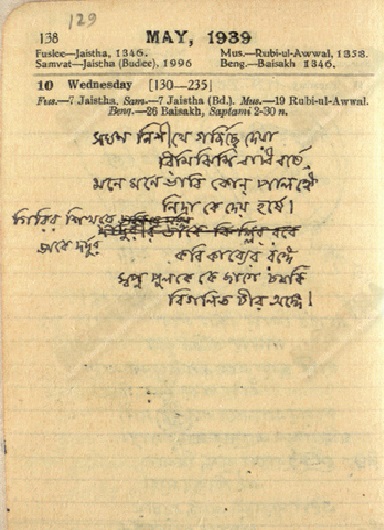 129
138 MAY, 1939
Fuslee—Jaistha, 1346. Mus.—Rubi-ul-Awwal, 1358.
Samvat—Jaistha (Budee), 1996 Beng.—Baisakh 1346.
10 Wednesday [130—235]
Fus.—7 Jaistha, Sam.—7 Jaistha (Bd.). Mus.—19 Rubi-ul-Awwal.
Beng.—26 Baisakh, Saptami 2-30 n.
সঘন নিশীথে গর্জিছে দেয়া
রিমিঝিমি বারি বর্ষে,
মনে মনে ভাবি কোন্ পালঙ্কে
নিদ্রা কে দেয় হর্ষে।
গিরির শিখরে
ডাকে দর্দুর
কবি কাব্যের রঙ্গে
স্বপ্ন পুলকে কে জাগে চমকি
বিগলিত চীর অঙ্গে।